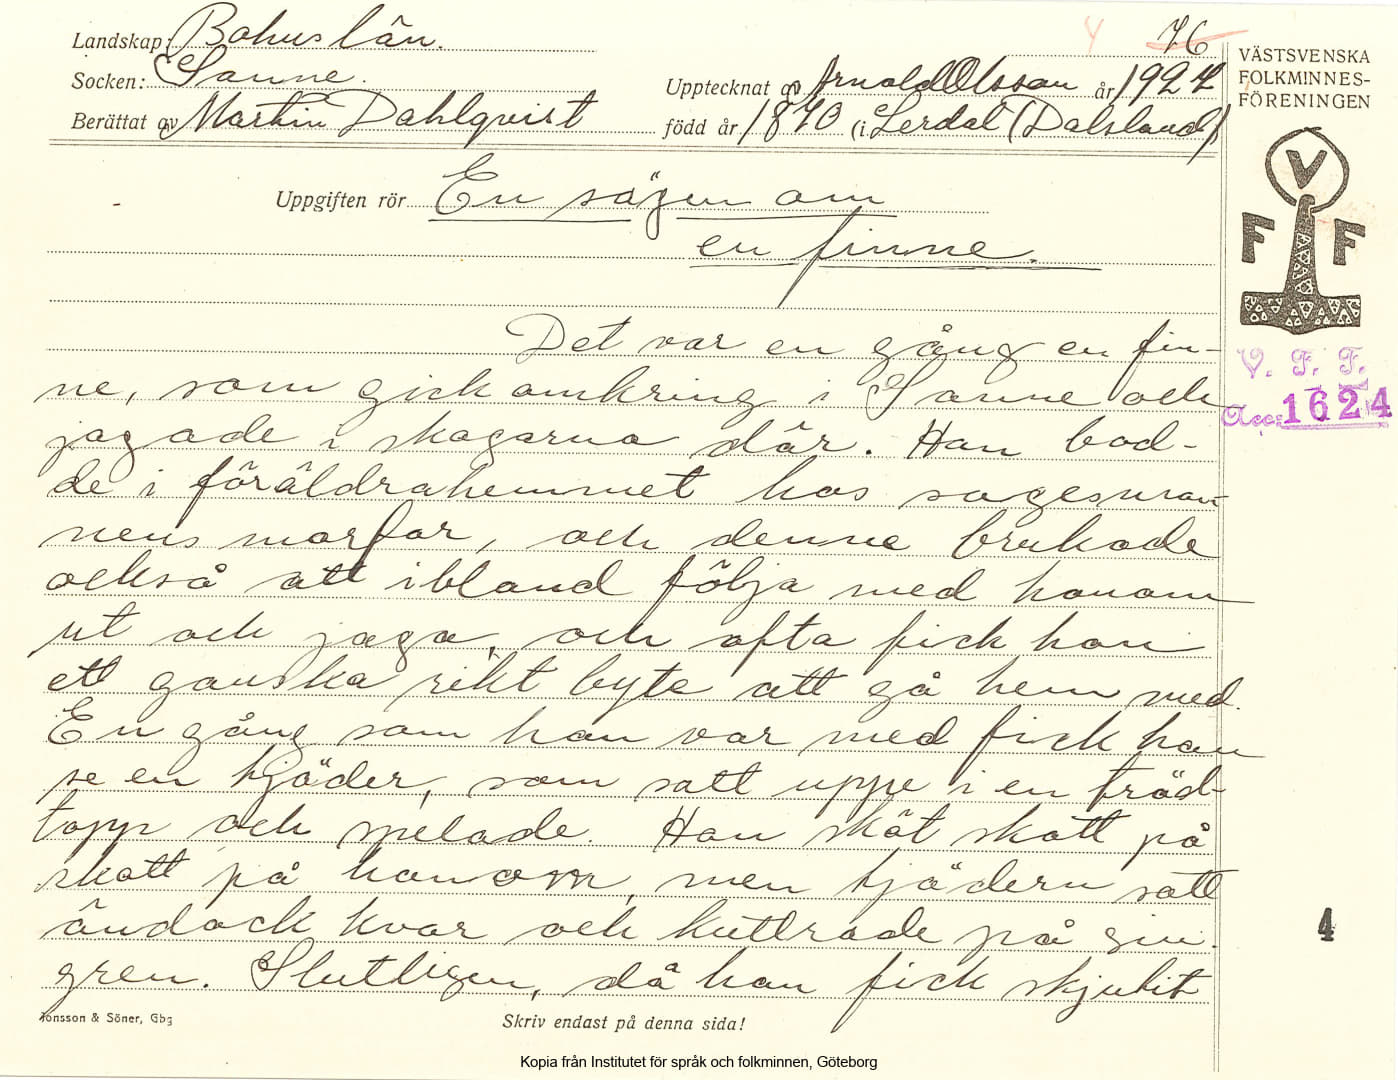 Landskap: Bohuslän.
Socken: Sanne.
Berättat av Martin Dahlqvist
76
4
Upptecknat av Arnold Olsson år 1924
född år 1870 (i Lerdal (Dalsland)
VÄSTSVENSKA
FOLKMINNES-
FÖRENINGEN
V
F F
V. F. F.
Acc: 1624
Uppgiften rör En sägen om
en finne.
Det var en gång en fin-
ne, som gick omkring i Sanne och
jagade i skogarna där. Han bod-
de i föräldrahemmet hos sagesman-
nens morfar, och denne brukade
också att ibland följa med honom
ut och jaga, och ofta fick han
ett ganska rikt byte att gå hem med.
En gång som han var med fick han
se en tjäder, som satt uppe i en träd-
topp och spelade. Han sköt skott på
skott på honom, men tjädern satt
ändock kvar och kuttrade på gin-
gren. Slutligen, då han fick skjutit
4
Jonsson & Söner, Gbg
Skriv endast på denna sida!
Kopia från Institutet för språk och folkminnen, Göteborg